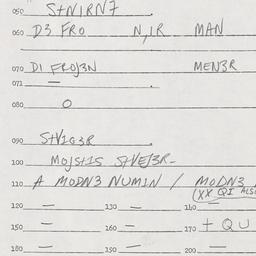 050 S+N1RN7
060 D3 FRO N,IR MAN
070 D1 FROJ3N MEN3R
071 —
080 O
090 S+V1G3R
100 MOJSTIS S+VEJ3R-
110 A MODN3 NUMIN / MODN3
(XX QI ALS
120 — 130 — 140 —
150 — 160 — 170 + QU
180 — 190 — 200 —